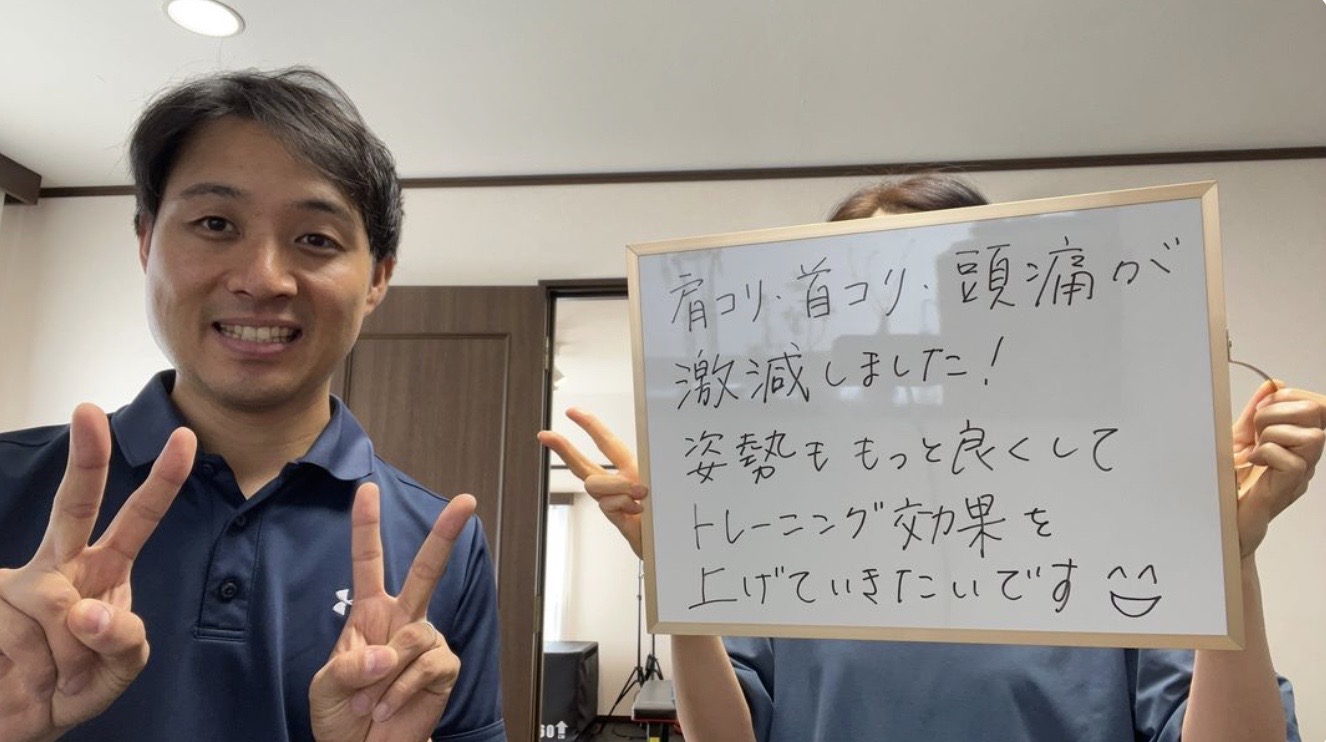 肩コリ・首コリ・頭痛が
激減しました!
姿勢ももっと良くして
トレーニング効果を
上げていきたいです